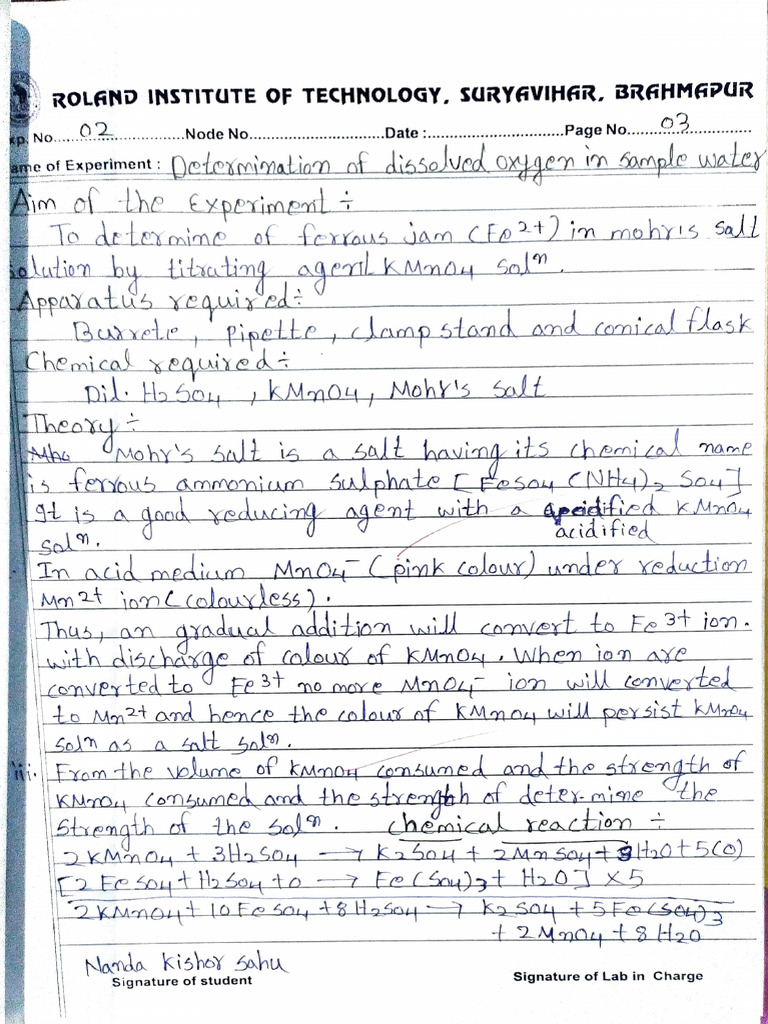 ROLAND INSTITUTE OF TECHNOLOGY, SURYAVIHAR, BRAHMAPUR
xp. No......02..............Node No................................Date :................................Page No......03..............
ame of Experiment : Determination of dissolved oxygen in sample water
Aim of the Experiment ÷
To determine of ferrous jam (Fe2+) in mohr's salt
solution by titrating agent KMnO4 solⁿ.
Apparatus required ÷
Burrete, pipette, clamp stand and conical flask
Chemical required ÷
Dil. H2SO4, KMnO4, Mohr's salt
Theory ÷
Mohr's salt is a salt having its chemical name
is ferrous ammonium sulphate [FeSO4 (NH4)2 SO4]
It is a good reducing agent with a KMnO4
acidified
solⁿ.
In acid medium MnO4⁻ (pink colour) under reduction
Mn2+ ion (colourless).
Thus, an gradual addition will convert to Fe3+ ion.
with discharge of colour of KMnO4. When ion are
converted to Fe3+ no more MnO4⁻ ion will converted
to Mn2+ and hence the colour of KMnO4 will persist KMnO4
solⁿ as a salt solⁿ.
iii. From the volume of KMnO4 consumed and the strength of
KMnO4 consumed and the strength of deter-mine the
strength of the solⁿ. chemical reaction ÷
2KMnO4 + 3H2SO4 → K2SO4 + 2MnSO4 + 3H2O + 5(O)
[2FeSO4 + H2SO4 + O → Fe(SO4)3 + H2O] ×5
2KMnO4 + 10FeSO4 + 8H2SO4 → K2SO4 + 5Fe(SO4)3
+ 2MnO4 + 8H2O
Nanda Kishor Sahu
Signature of student
Signature of Lab in Charge